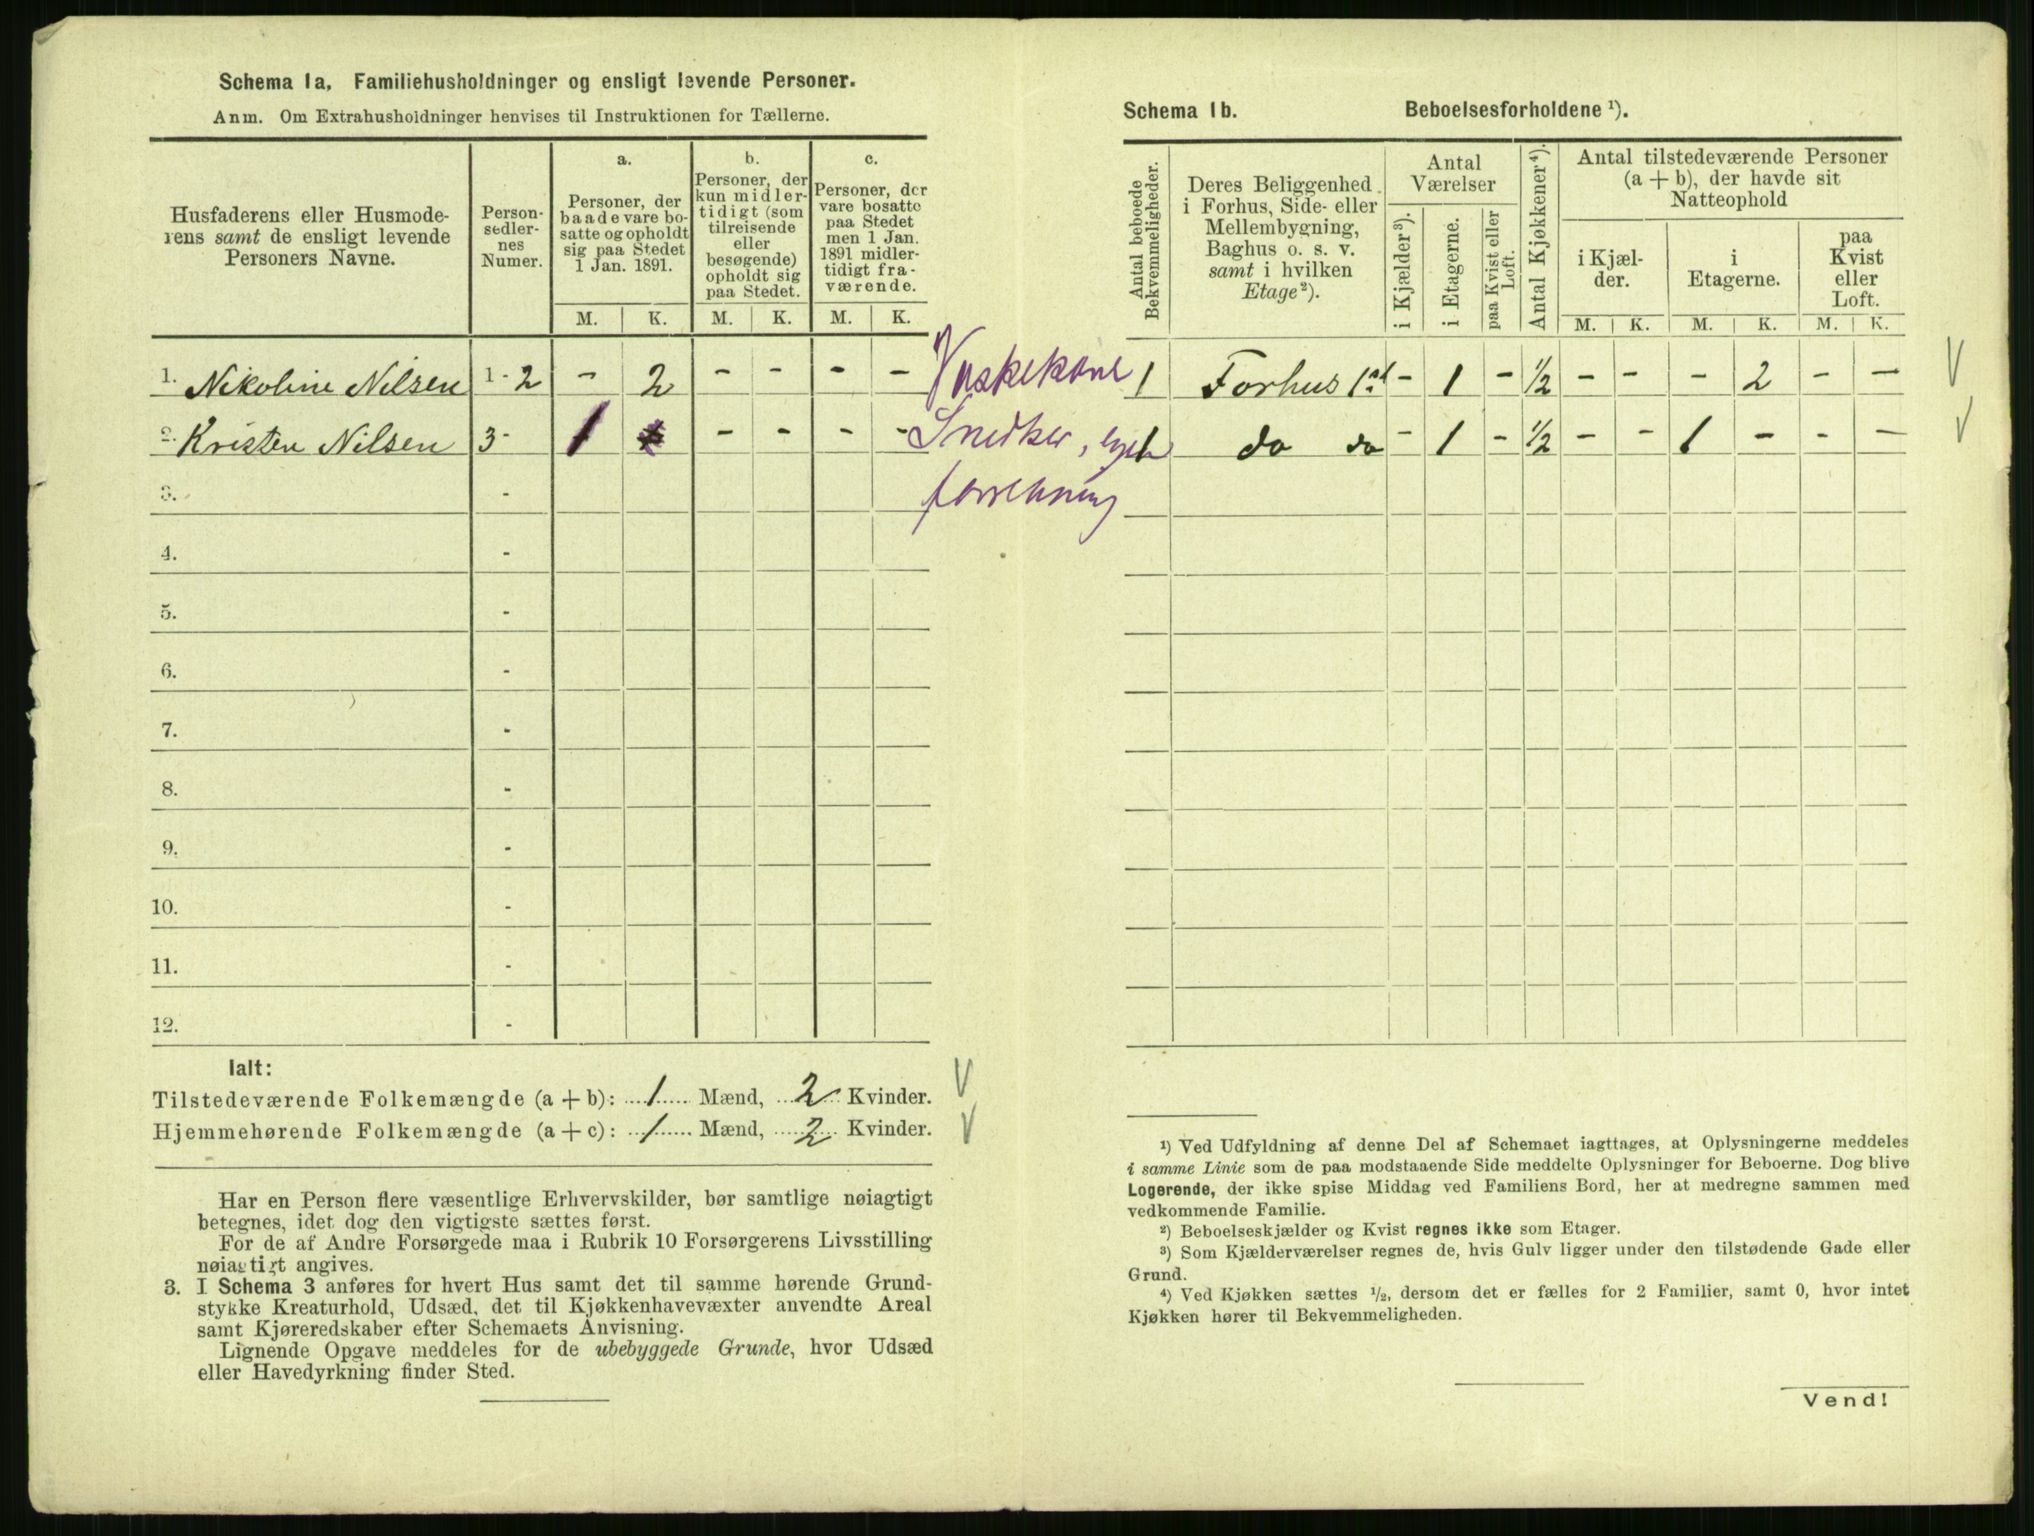 Schema 1a. Familiehusholdninger og ensligt levende Personer.
Anm. Om Extrahusholdninger henvises til Instruktionen for Tællerne.
Husfaderens eller Husmode-
rens samt de ensligt levende
Personers Navne.
Person-
sedler-
nes
Numer.
a.
Personer, der
baade vare bo-
satte og opholdt
sig paa Stedet
1 Jan. 1891.
b.
Personer, der
kun midler-
tidigt (som
tilreisende
eller
besøgende)
opholdt sig
paa Stedet.
c.
Personer, der
vare bosatte
paa Stedet
men 1 Jan.
1891 midler-
tidigt fra-
værende.
M. K. M. K. M. K.
1. Nikoline Nilsen 1 - 2 - 2 - - - - Vaskekone
2. Kristen Nilsen 3 - 1 - - - - Snedker, egen
forretning
3. -
4. -
5. -
6. -
7. -
8. -
9. -
10. -
11. -
12. -
Ialt:
Tilstedeværende Folkemængde (a + b): 1 Mænd, 2 Kvinder. V
Hjemmehørende Folkemængde (a + c): 1 Mænd, 2 Kvinder. V
Har en Person flere væsentlige Erhvervskilder, bør samtlige nøiagtigt
betegnes, idet dog den vigtigste sættes først.
For de af Andre Forsørgede maa i Rubrik 10 Forsørgerens Livsstilling
nøiagtigt angives.
3. I Schema 3 anføres for hvert Hus samt det til samme hørende Grund-
stykke Kreaturhold, Udsæd, det til Kjøkkenhavevæxter anvendte Areal
samt Kjøreredskaber efter Schemaets Anvisning.
Lignende Opgave meddeles for de ubebyggede Grunde, hvor Udsæd
eller Havedyrkning finder Sted.
Schema 1b. Beboelsesforholdene ¹).
Antal beboede
Bekvemmeligheder.
Deres Beliggenhed
i Forhus, Side- eller
Mellembygning,
Baghus o. s. v.
samt i hvilken
Etage²).
Antal
Værelser
i Kjælder³).
i Etagerne.
paa Kvist eller
Loft.
Antal Kjøkkener⁴).
Antal tilstedeværende Personer
(a + b), der havde sit
Natteophold
i Kjæl-
der.
i
Etagerne.
paa
Kvist
eller
Loft.
M. K. M. K. M. K.
1 Forhus 1st - 1 - ½ - - - 2 - - V
1 do do - 1 - ½ - - 1 - - - V
¹) Ved Udfyldning af denne Del af Schemaet iagttages, at Oplysningerne meddeles
i samme Linie som de paa modstaaende Side meddelte Oplysninger for Beboerne. Dog blive
Logerende, der ikke spise Middag ved Familiens Bord, her at medregne sammen med
vedkommende Familie.
²) Beboelseskjælder og Kvist regnes ikke som Etager.
³) Som Kjælderværelser regnes de, hvis Gulv ligger under den tilstødende Gade eller
Grund.
⁴) Ved Kjøkken sættes ½, dersom det er fælles for 2 Familier, samt 0, hvor intet
Kjøkken hører til Bekvemmeligheden.
Vend!